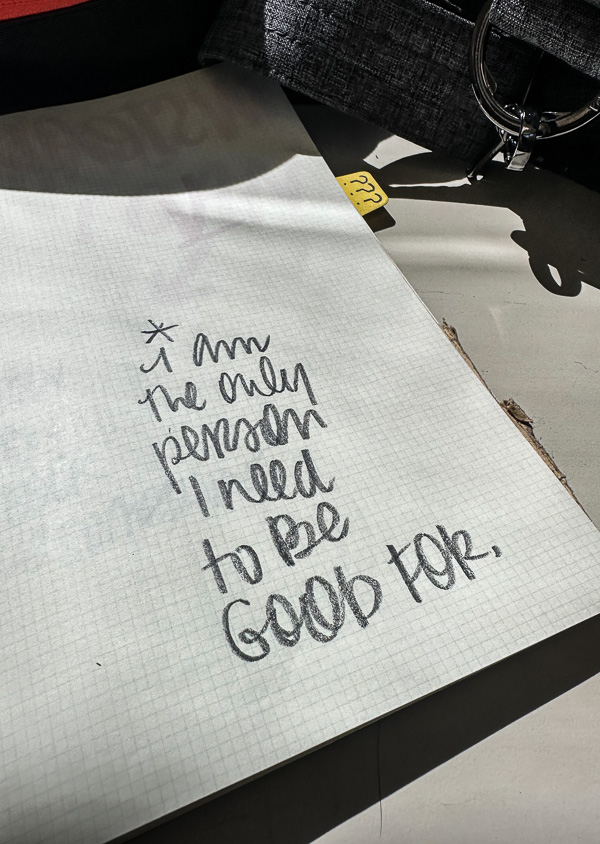 ???
* i am
the only
person
I need
to Be
GOOD FOR.